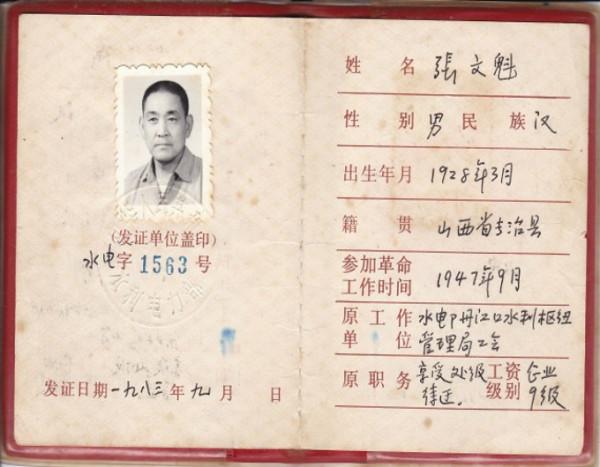 (发证单位盖印)
水电字 1563 号
水利电力部
发证日期 一九八三年 九月 日
姓名 張文魁
性别 男 民族 汉
出生年月 1928年3月
籍贯 山西省长治县
参加革命
工作时间 1947年9月
原工作 水电部丹江口水利枢纽
单位 管理局工会
原职务 享受处级 工资 企业
待迂. 级别 9级